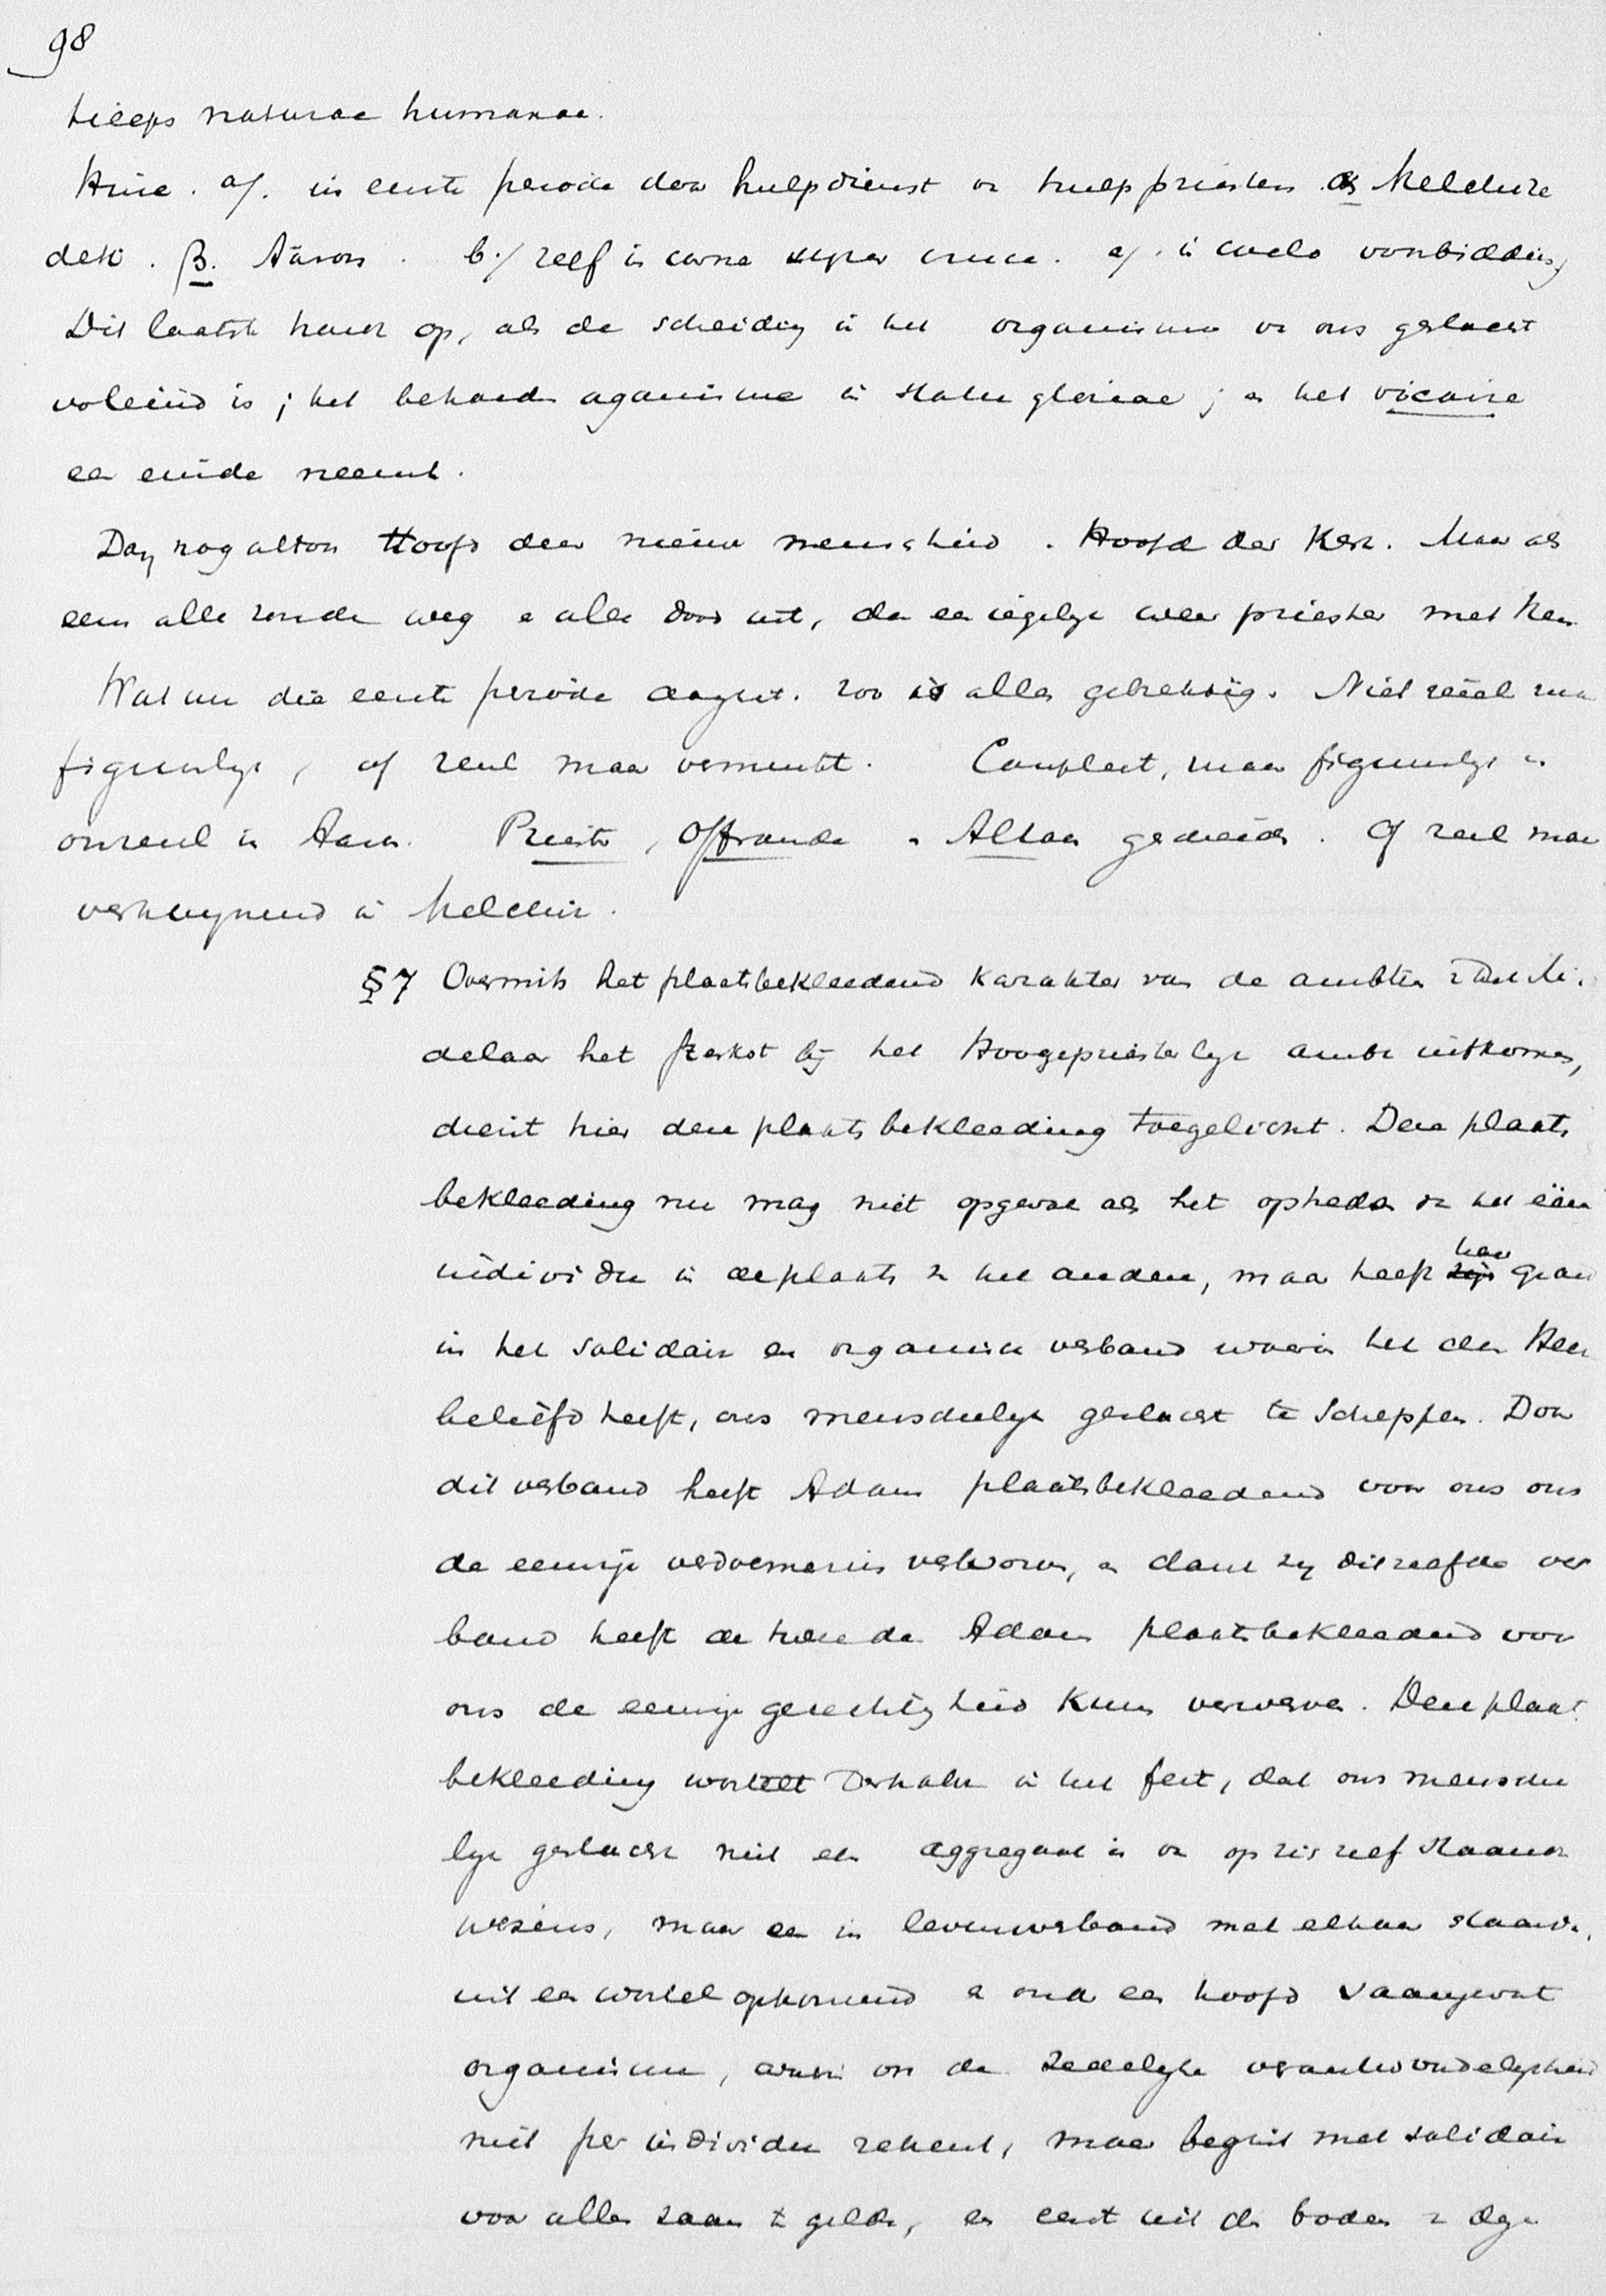 98
ticeps naturae humanae.
Hinc. a/. in eerste periode door hulpdienst v hulppriesters. α Melchize
dek. β. Aäron. b./ zelf in carne super cruce. c/. in coelo voorbidding
Dit laatste houdt op, als de scheiding in het organisme v ons geslacht
voleind is; het behoude organisme in statu gloriae; en het vicaire
een einde neemt.
Dan nog altoos Hoofd der nieuwe menschheid. Hoofd der Kerk. Maar als
eens alle zonde weg e alle dood uit, dan een iegelijk weer priester met Hem
Wat nu die eerste periode aangaat. zoo is alles gebrekkig. Niet reëel maar
figuurlijk, of reëel maar verminkt. Compleet, maar figuurlijk en
onreëel in Aäron. Priester, Offerande en Altaar gedeeld. Of reëel maar
verdwijnend in Melchiz.
§7 Overmits het plaatsbekleedend karakter van de ambten v den Mid
delaar het sterkst bij het Hoogepriesterlijk ambt uitkomt,
dient hier deze plaatsbekleeding toegelicht. Deze plaats
bekleeding nu mag niet opgevat als het optreden v het ééne
individu in de plaats v het andere, maar heeft haar grond
in het solidair en organisch verband waarin het den Heer
beliefd heeft, ons menschelijk geslacht te scheppen. Door
dit verband heeft Adam plaatsbekleedend voor ons ons
de eeuwige verdoemenis verworven, e dank zij ditzelfde ver
band heeft de tweede Adam plaatsbekleedend voor
ons de eeuwige gerechtigheid kunnen verwerven. Deze plaats
bekleeding wortelt derhalve in het feit, dat ons mensche
lijk geslacht niet een aggregaat is v op zich zelf staande
wezens, maar een in levensverband met elkaar staande,
uit een wortel opkomend e onder een hoofd saamgevat
organisme, waarin ook de zedelijke verantwoordelijkheid
niet per individu rekent, maar begint met solidair
voor allen saam te gelden, en eerst uit den bodem v deze